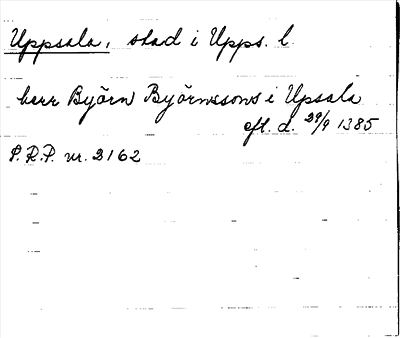 Uppsala, stad i Upps. l.
herr Byörn Byörnssons i Upsala
eft. d. 29/9 1385
P.R.P. nr. 2162